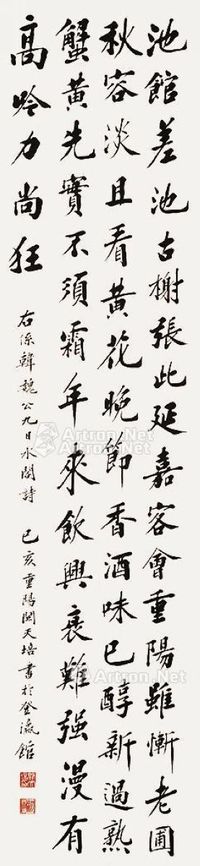 池館差池古榭張此延嘉客會重陽雖慚老圃
秋容淡且看黃花晚節香酒味已醇新過熟
蟹黃先實不須霜年來飲興衰難强漫有
高吟力尚狂
右係韓魏公九日水閣詩 己亥重陽關天培書於登瀛館
Artron.Net